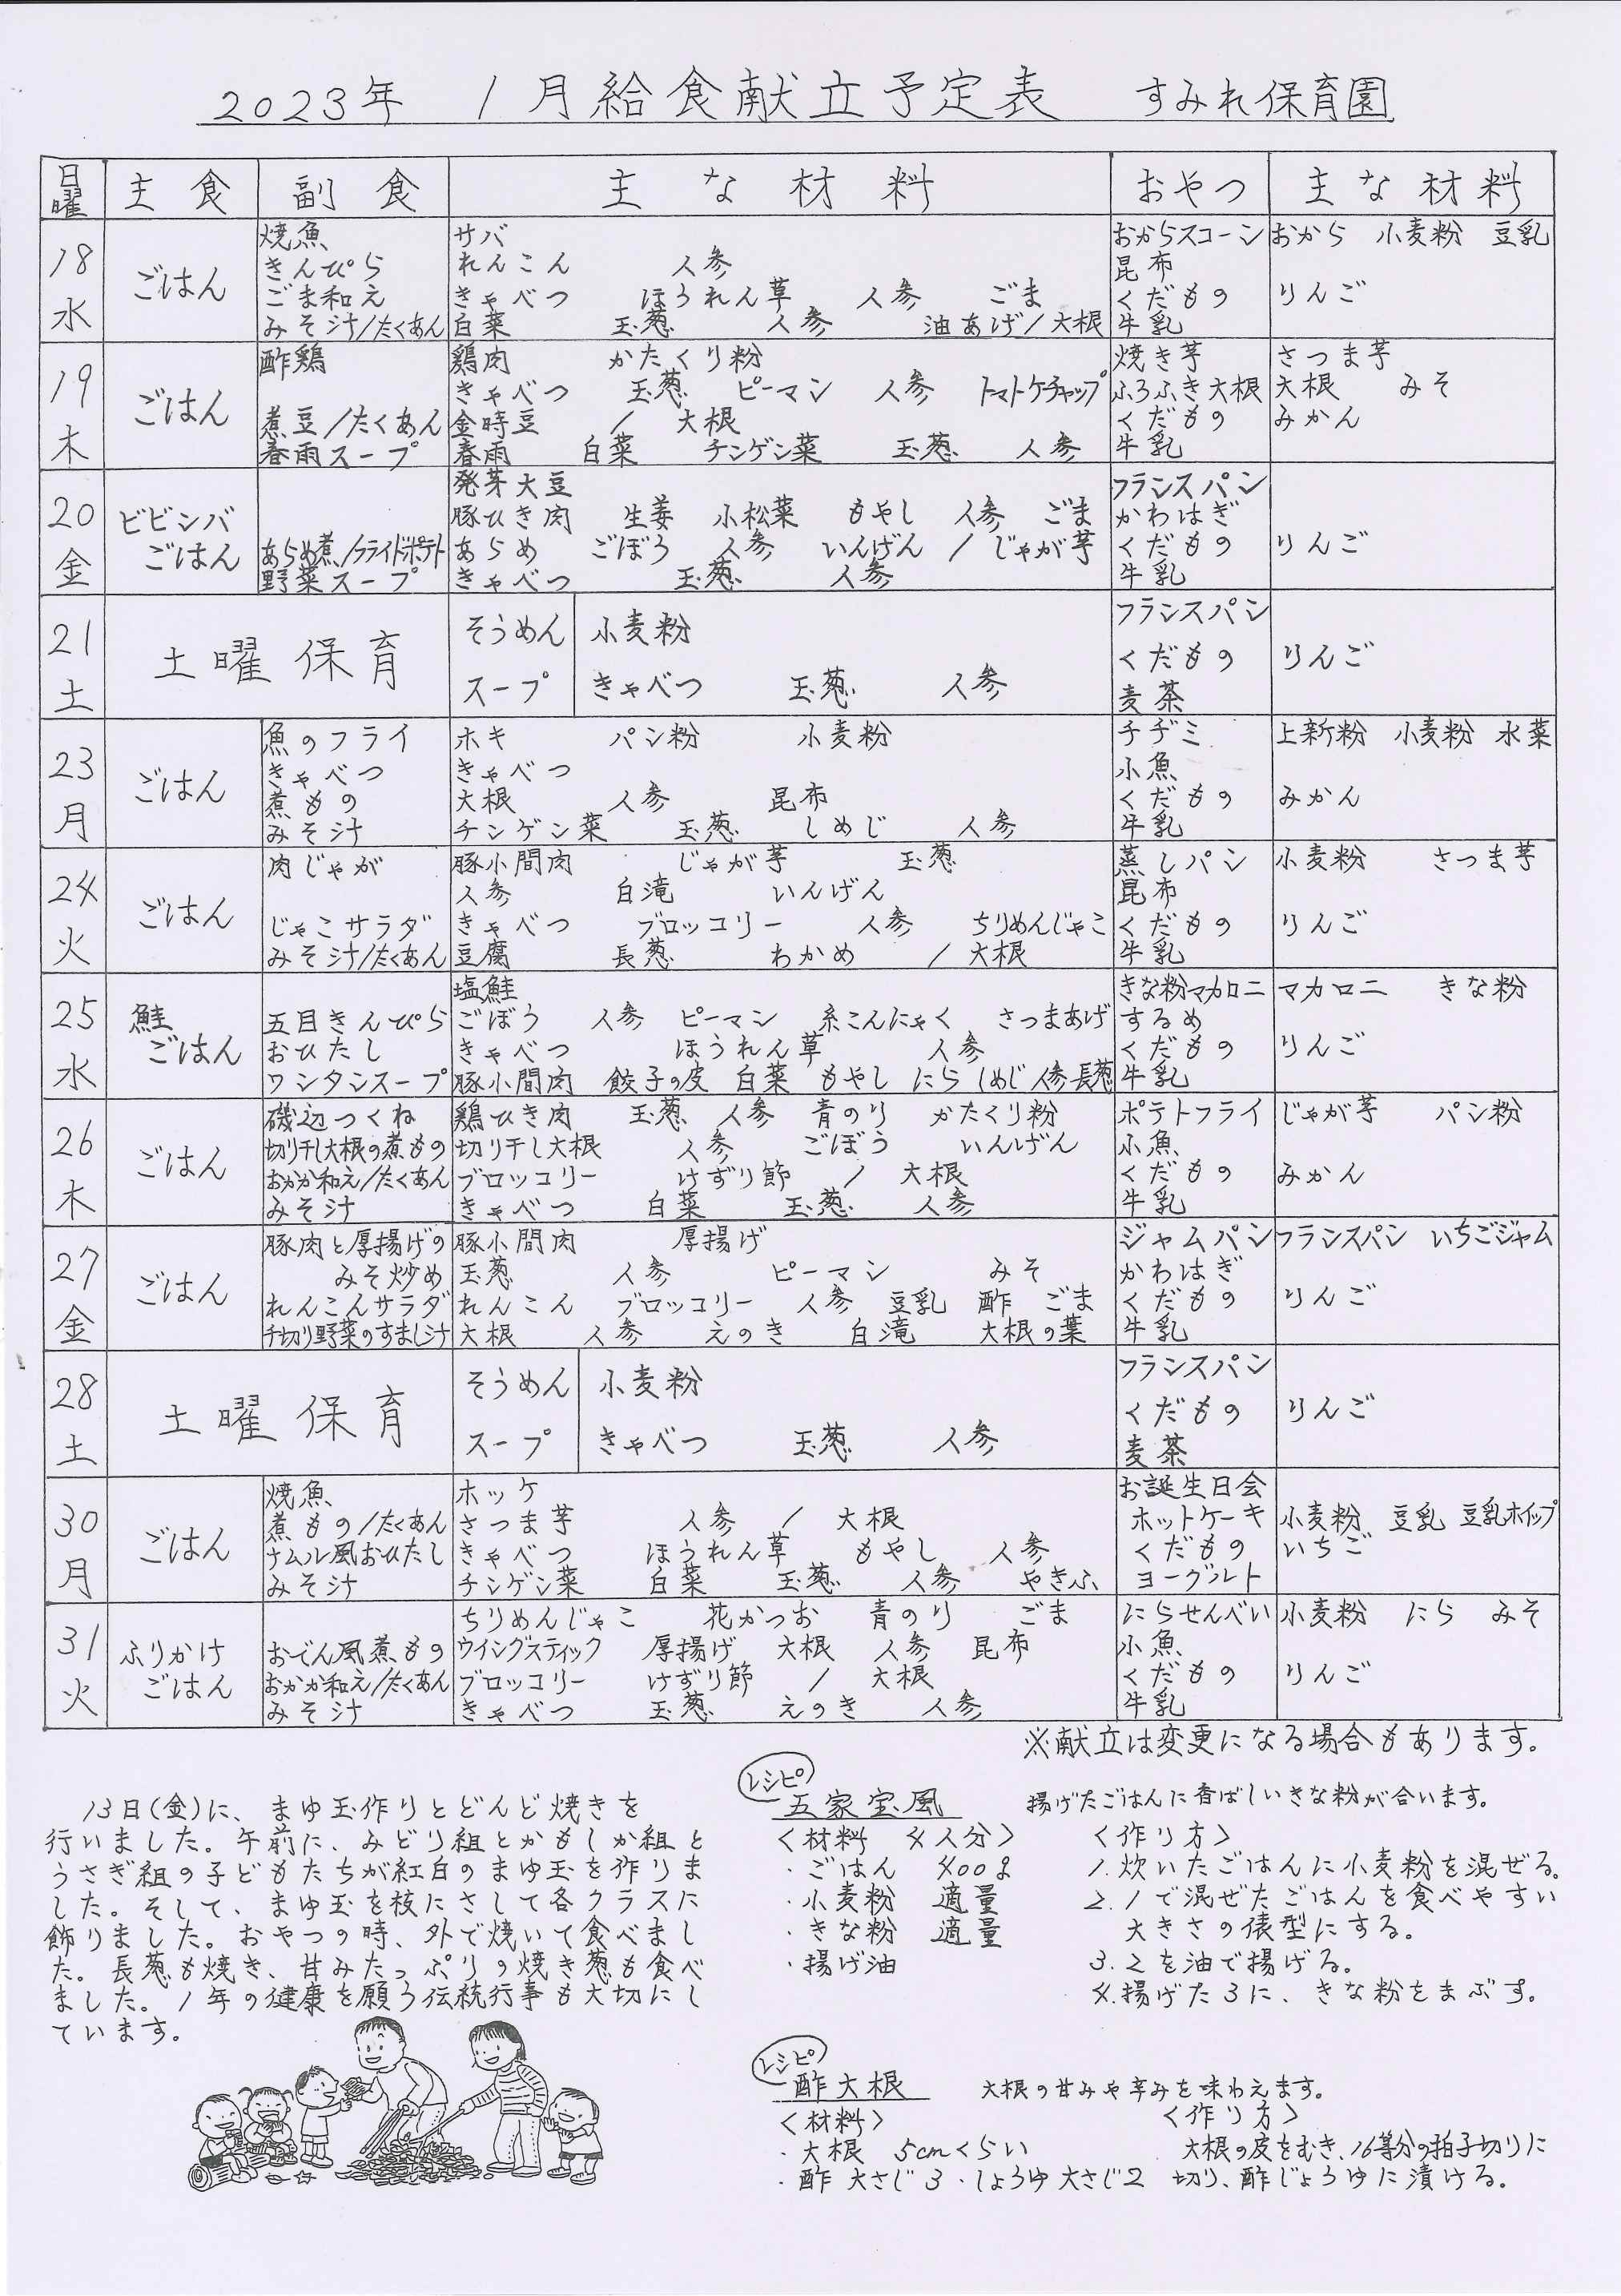 2023年 1月給食献立予定表 すみれ保育園
日曜 主食 副食 主な材料 おやつ 主な材料
18 水 ごはん
焼魚 サバ おからスコーン おから 小麦粉 豆乳
きんぴら れんこん 人参 昆布
ごま和え きゃべつ ほうれん草 人参 ごま くだもの りんご
みそ汁/たくあん 白菜 玉葱 人参 油あげ/大根 牛乳
19 木 ごはん
酢鶏 鶏肉 かたくり粉 焼き芋 さつま芋
きゃべつ 玉葱 ピーマン 人参 トマトケチャップ ふろふき大根 大根 みそ
煮豆/たくあん 金時豆 / 大根 くだもの みかん
春雨スープ 春雨 白菜 チンゲン菜 玉葱 人参 牛乳
20 金 ビビンバごはん
発芽大豆 フランスパン
豚ひき肉 生姜 小松菜 もやし 人参 ごま かわはぎ
あらめ煮/フライドポテト あらめ ごぼう 人参 いんげん / じゃが芋 くだもの りんご
野菜スープ きゃべつ 玉葱 人参 牛乳
21 土 土曜保育
そうめん 小麦粉 フランスパン
くだもの りんご
スープ きゃべつ 玉葱 人参 麦茶
23 月 ごはん
魚のフライ ホキ パン粉 小麦粉 チヂミ 上新粉 小麦粉 水菜
きゃべつ きゃべつ 小魚
煮もの 大根 人参 昆布 くだもの みかん
みそ汁 チンゲン菜 玉葱 しめじ 人参 牛乳
24 火 ごはん
肉じゃが 豚小間肉 じゃが芋 玉葱 蒸しパン 小麦粉 さつま芋
人参 白滝 いんげん 昆布
じゃこサラダ きゃべつ ブロッコリー 人参 ちりめんじゃこ くだもの りんご
みそ汁/たくあん 豆腐 長葱 わかめ / 大根 牛乳
25 水 鮭ごはん
塩鮭 きな粉マカロニ マカロニ きな粉
五目きんぴら ごぼう 人参 ピーマン 糸こんにゃく さつまあげ するめ
おひたし きゃべつ ほうれん草 人参 くだもの りんご
ワンタンスープ 豚小間肉 餃子の皮 白菜 もやし にら しめじ 人参 長葱 牛乳
26 木 ごはん
磯辺つくね 鶏ひき肉 玉葱 人参 青のり かたくり粉 ポテトフライ じゃが芋 パン粉
切り干し大根の煮もの 切り干し大根 人参 ごぼう いんげん 小魚
おかか和え/たくあん ブロッコリー けずり節 / 大根 くだもの みかん
みそ汁 きゃべつ 白菜 玉葱 人参 牛乳
27 金 ごはん
豚肉と厚揚げの 豚小間肉 厚揚げ ジャムパン フランスパン いちごジャム
みそ炒め 玉葱 人参 ピーマン みそ かわはぎ
れんこんサラダ れんこん ブロッコリー 人参 豆乳 酢 ごま くだもの りんご
千切り野菜のすまし汁 大根 人参 えのき 白滝 大根の葉 牛乳
28 土 土曜保育
そうめん 小麦粉 フランスパン
くだもの りんご
スープ きゃべつ 玉葱 人参 麦茶
30 月 ごはん
焼魚 ホッケ お誕生日会
煮もの/たくあん さつま芋 人参 / 大根 ホットケーキ 小麦粉 豆乳 豆乳ホイップ
ナムル風おひたし きゃべつ ほうれん草 もやし 人参 くだもの いちご
みそ汁 チンゲン菜 白菜 玉葱 人参 やきふ ヨーグルト
31 火 ふりかけごはん
ちりめんじゃこ 花かつお 青のり ごま にらせんべい 小麦粉 にら みそ
おでん風煮もの ウイングスティック 厚揚げ 大根 人参 昆布 小魚
おかか和え/たくあん ブロッコリー けずり節 / 大根 くだもの りんご
みそ汁 きゃべつ 玉葱 えのき 人参 牛乳
※献立は変更になる場合もあります。
13日(金)に、まゆ玉作りとどんど焼きを
行いました。午前に、みどり組とかもしか組と
うさぎ組の子どもたちが紅白のまゆ玉を作りま
した。そして、まゆ玉を枝にさして各クラスに
飾りました。おやつの時、外で焼いて食べまし
た。長葱も焼き、甘みたっぷりの焼き葱も食べ
ました。1年の健康を願う伝統行事も大切にし
ています。
レシピ
五家宝風 揚げたごはんに香ばしいきな粉が合います。
<材料 4人分> <作り方>
・ごはん 400g 1.炊いたごはんに小麦粉を混ぜる。
・小麦粉 適量 2.1で混ぜたごはんを食べやすい
・きな粉 適量 大きさの俵型にする。
・揚げ油 3.2を油で揚げる。
4.揚げた3に、きな粉をまぶす。
レシピ
酢大根 大根の甘みや辛みを味わえます。
<材料> <作り方>
・大根 5cmくらい 大根の皮をむき、16等分の拍子切りに
・酢 大さじ3・しょうゆ 大さじ2 切り、酢じょうゆに漬ける。